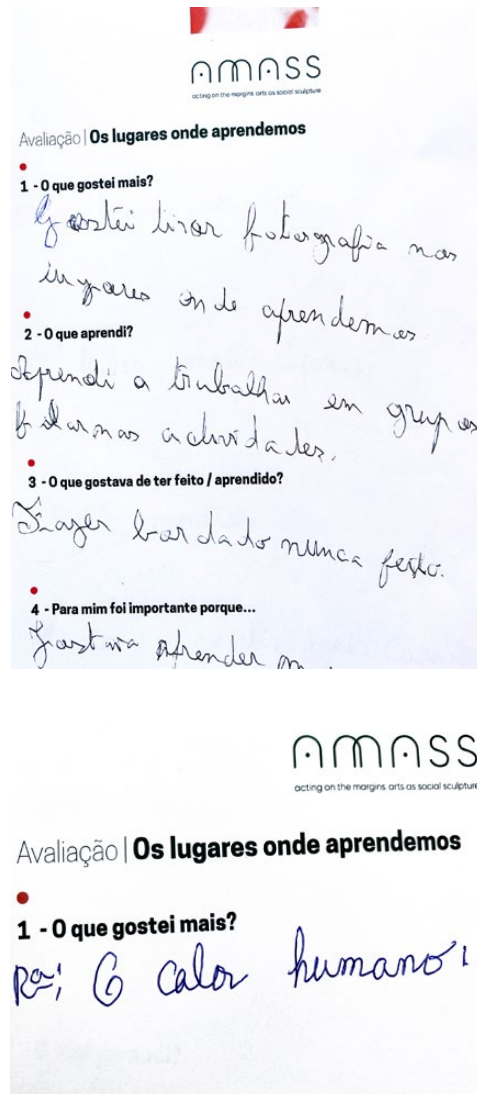 AMASS
acting on the margins arts as social sculpture
Avaliação | Os lugares onde aprendemos
1 - O que gostei mais?
Gostei tirar fotografia nos
lugares onde aprendemos
2 - O que aprendi?
Aprendi a trabalhar em grupos
actividades.
3 - O que gostava de ter feito / aprendido?
Fazer bordado nunca feito.
4 - Para mim foi importante porque...
Gostava aprender
AMASS
acting on the margins arts as social sculpture
Avaliação | Os lugares onde aprendemos
1 - O que gostei mais?
Rª; O calor humano!